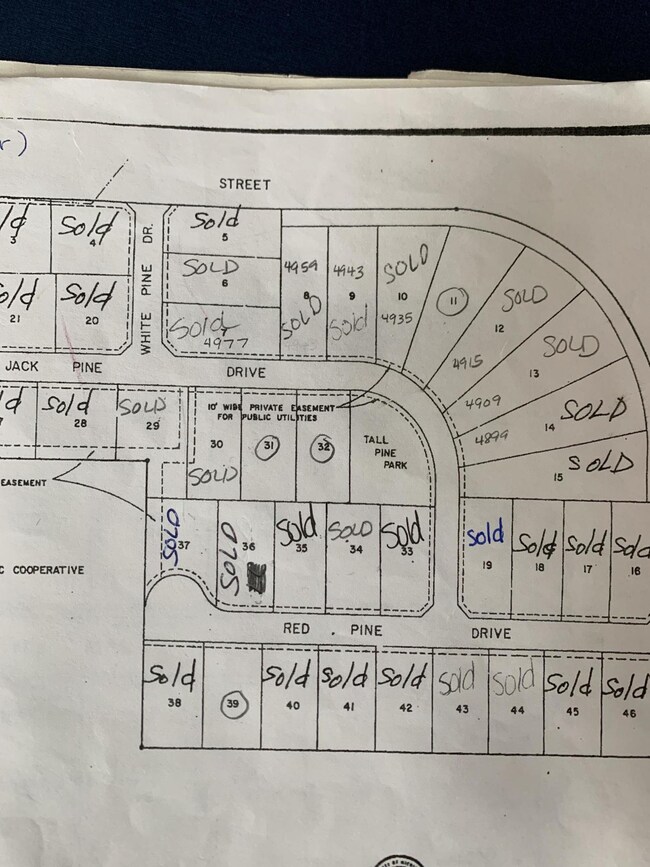 r)
STREET
Sold
3
Sold
4
WHITE PINE DR.
Sold
5
SOLD
6
Sold
7
4977
4959
8
SOLD
4943
9
Sold
SOLD
10
4935
11
SOLD
12
4915
SOLD
13
4909
SOLD
14
4899
SOLD
15
Sold
21
Sold
20
JACK PINE DRIVE
Sold
28
SOLD
29
10' WIDE PRIVATE EASEMENT
FOR PUBLIC UTILITIES
30
SOLD
31
32
TALL
PINE
PARK
EASEMENT
C COOPERATIVE
SOLD
37
SOLD
36
Sold
35
SOLD
34
Sold
33
Sold
19
Sold
18
Sold
17
Sold
16
RED PINE DRIVE
Sold
38
39
Sold
40
Sold
41
Sold
42
Sold
43
Sold
44
Sold
45
Sold
46